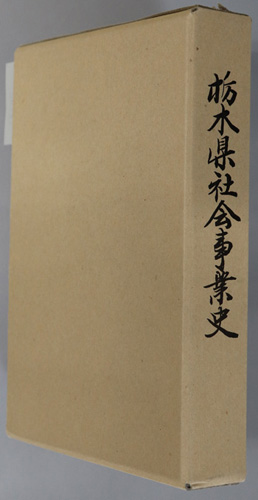 栃木県社会事業史